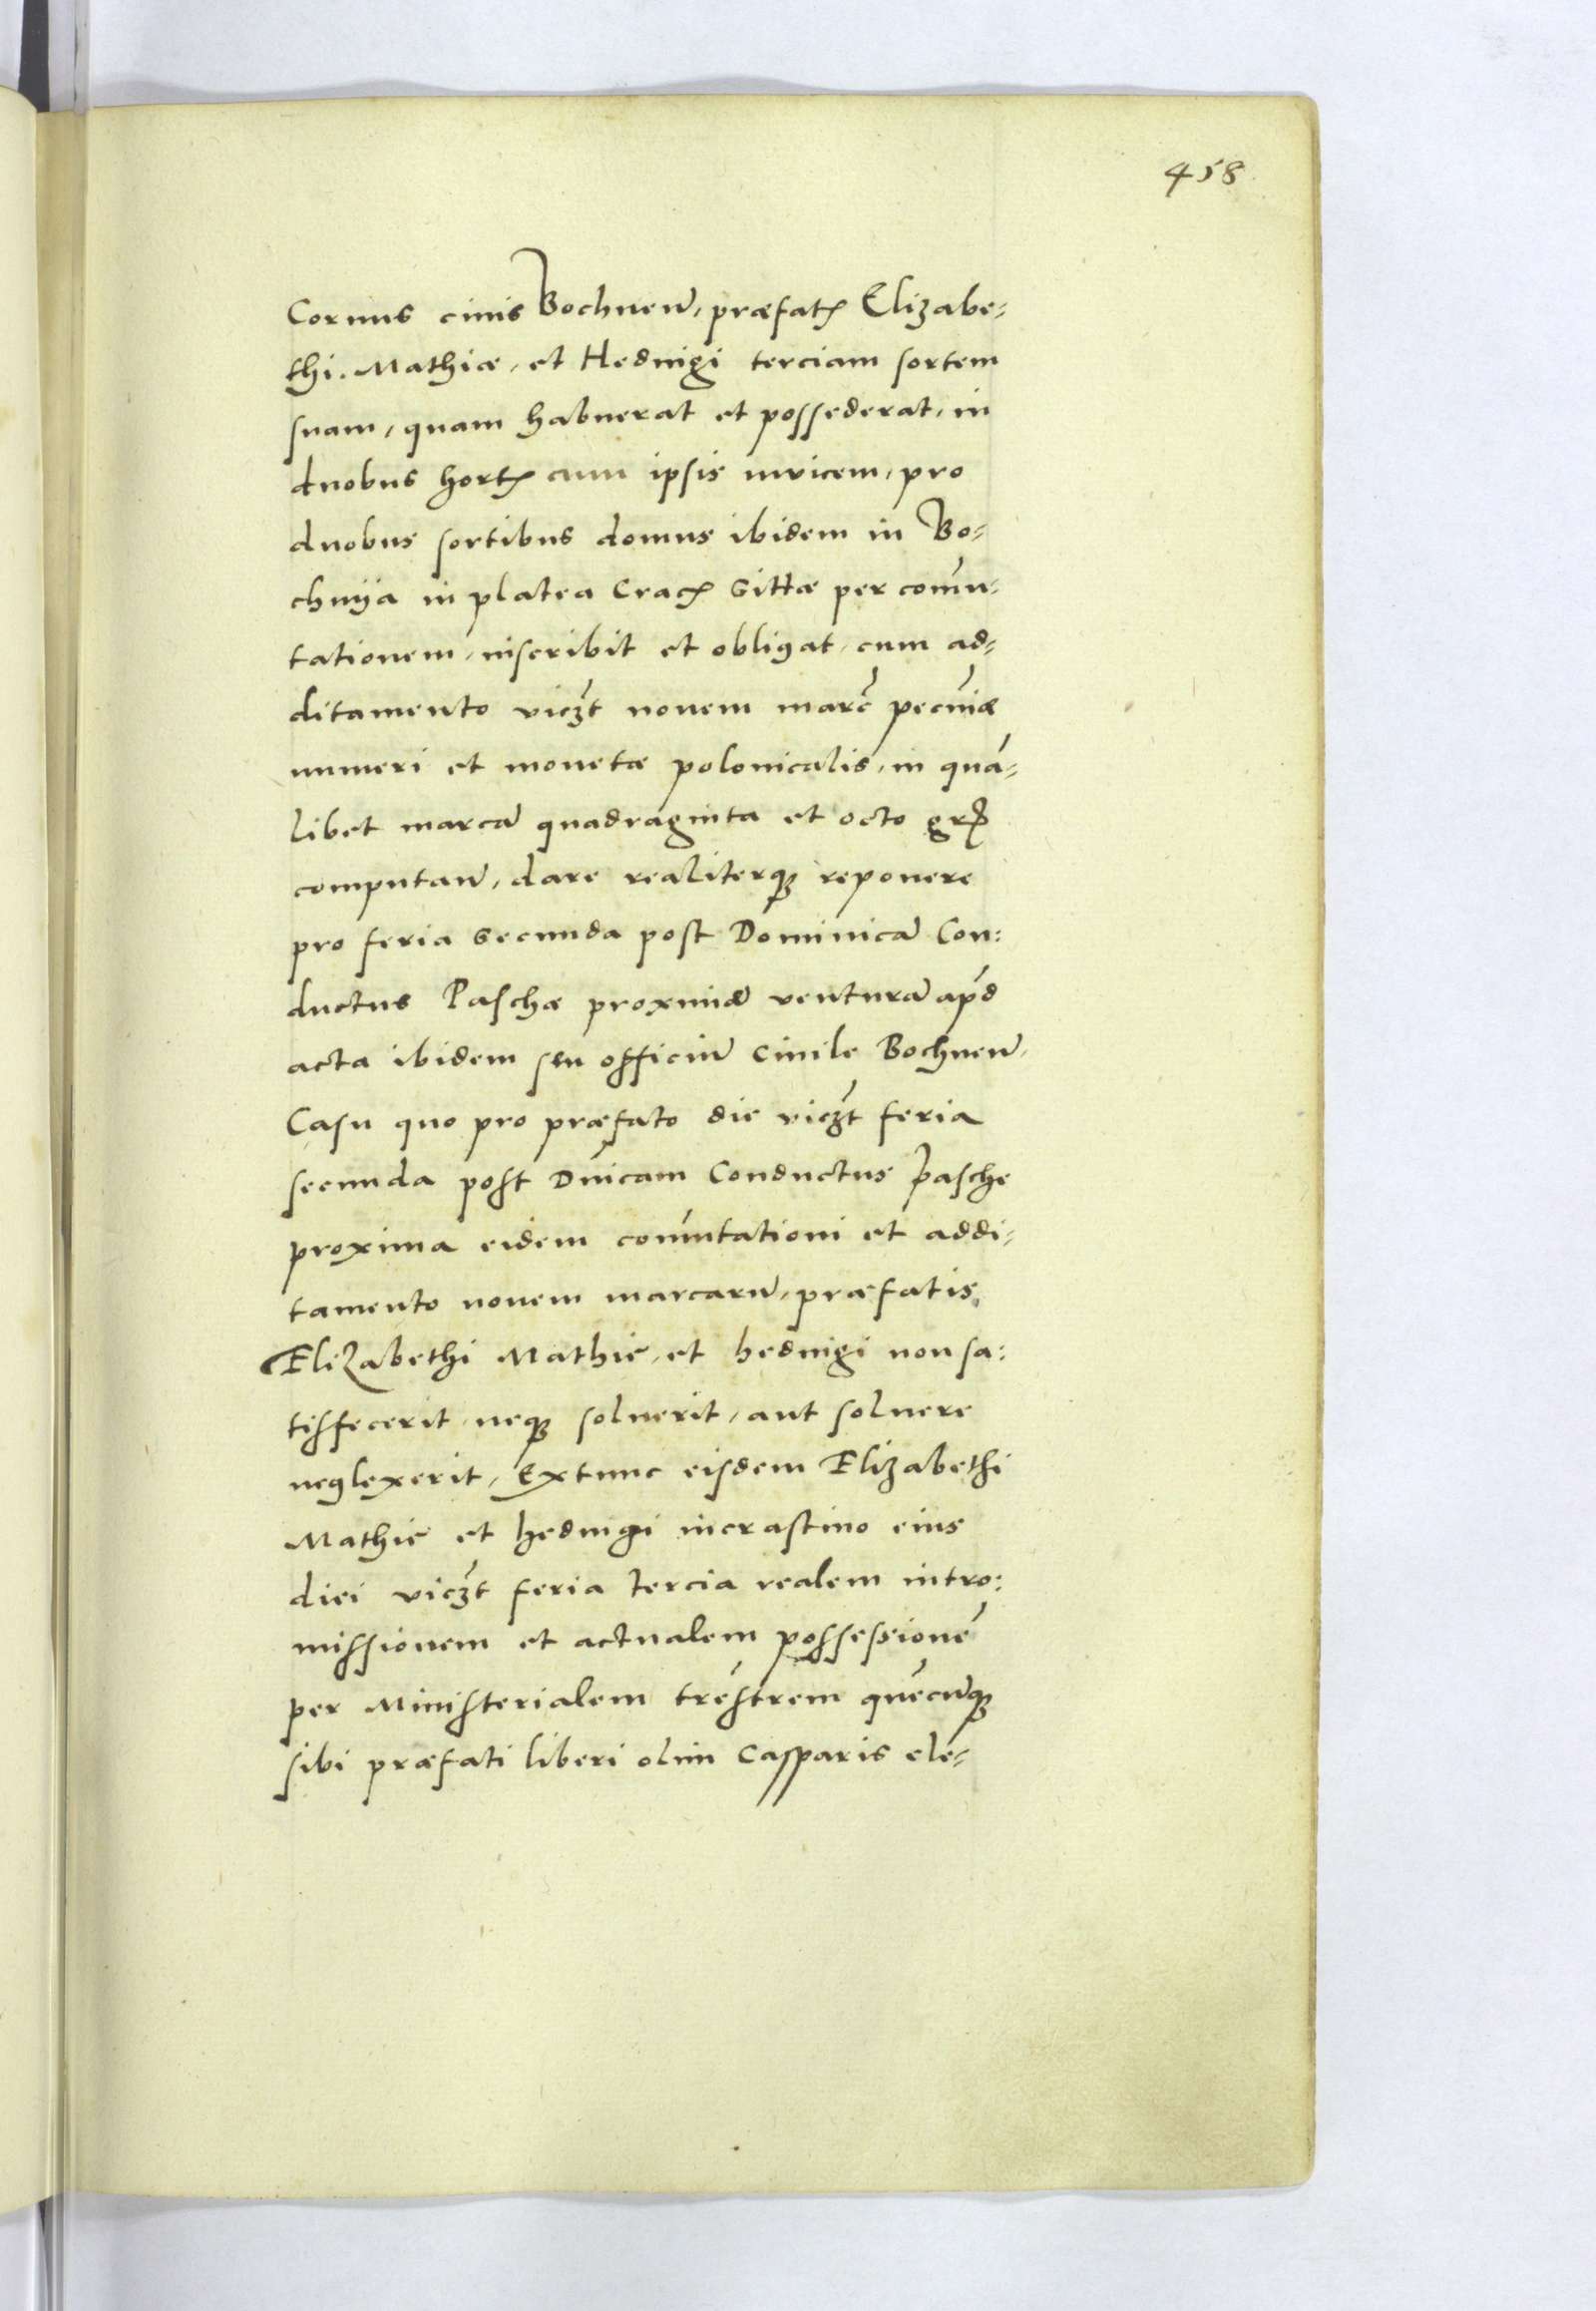 458
Coruus ciuis Bochnen̄, præfatꝭ Elizabe-
thi. Mathiæ, et Heduigi terciam sortem
suam, quam habuerat et possederat, in
duobus hortꝭ cum ipsis inuicem, pro
duobus sortibus domus ibidem in Bo-
chnÿa in platea Cracꝭ Sittæ per com̄u-
tationem, inscribit et obligat, cum ad-
ditamento vicꝫt nouem marc̄ pecuniæ
numeri et monetæ polonicalis, in qua-
libet marca quadraginta et octo grꝭ
computan̄, dare realiterqꝫ reponere
pro feria secunda post Dominicā Con:
ductus Paschæ proximā venturā apd̄
acta ibidem seu officiū Ciuile Bochnen̄,
Casu quo pro præfato die vicꝫt feria
secunda post Dn̄icam Conductus Pasche
proxima eidem com̄utationi et addi-
tamento nouem marcarū, præfatis
Elizabethi Mathie, et heduigi non sa:
tisfecerit neqꝫ soluerit, aut soluere
neglexerit, Extunc eisdem Elizabethi
Mathie et heduigi incrastino eius
diei vicꝫt feria tercia realem intro:
missionem et actualem possessionē
per Ministerialem tr̄estrem quēcūqꝫ
sibi præfati liberi olim Casparis ele-